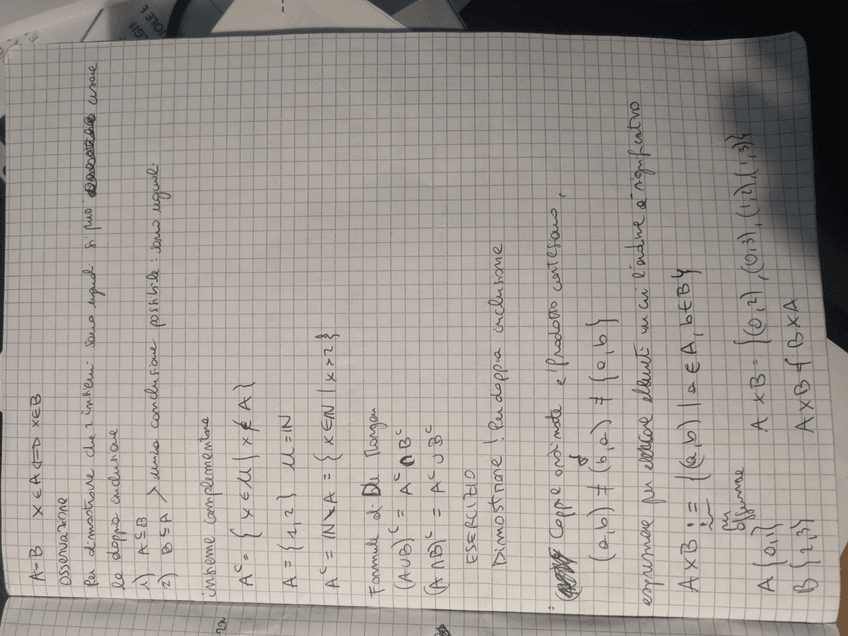 A=B x ∈ A ⟺ x∈B
Osservazione
Per dimostrare che 2 insiemi sono uguali si può usare
la doppia inclusione
1) A ⊆ B
2) B ⊆ A > unica conclusione possibile: sono uguali
insieme complementare
A^c = { x ∈ U | x ∉ A }
A = {1,2} U = ℕ
A^c = ℕ \ A = { x ∈ ℕ | x > 2 }
Formule di De Morgan
(A∪B)^c = A^c ∩ B^c
(A∩B)^c = A^c ∪ B^c
ESERCIZIO
Dimostrare! Per doppia inclusione
Coppie ordinate e prodotto cartesiano,
(a,b) ≠ (b,a) ≠ {a,b}
espressione per elementi in cui l'ordine è significativo
A×B := {(a,b) | a ∈ A, b∈B}
per
definizione
A {0,1} A×B = {(0,2),(0,3),(1,2),(1,3)}
B {2,3} A×B ≠ B×A
SOLE E